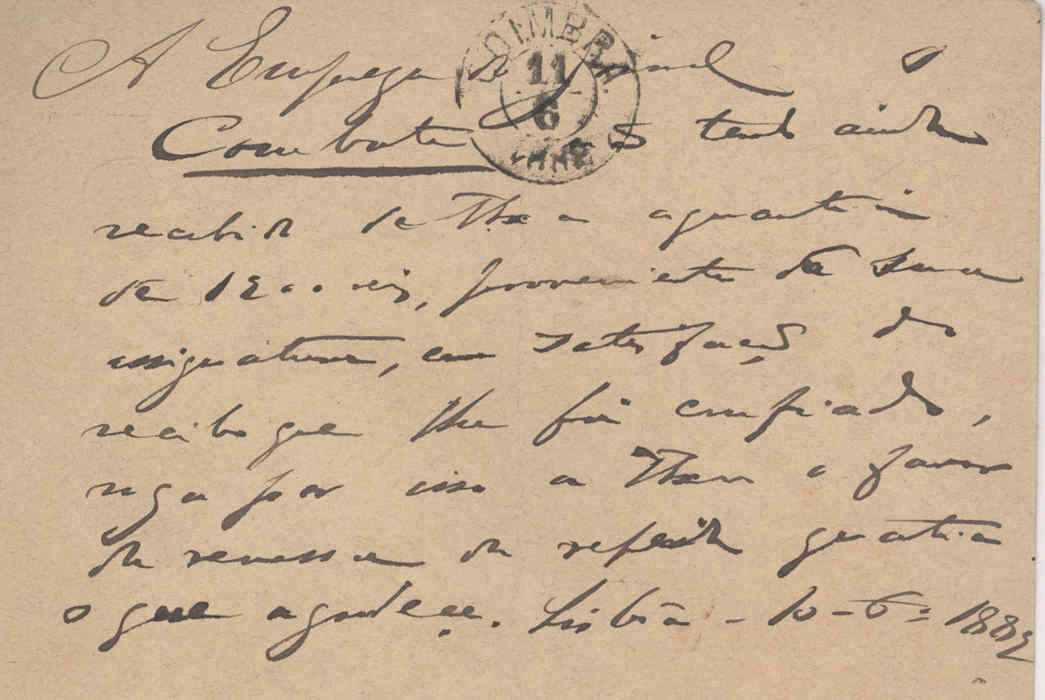 A Empreza do Jornal o
Combate não tendo ainda
recebido de V. Exa a quantia
de 1200 reis, proveniente da sua
assignatura, em satisfação do
recibo que lhe foi confiado,
roga por isso a V. Exa o favor
da remessa da referida quantia
o que agradece. Lisboa - 10-6=1882
COIMBRA
11
6